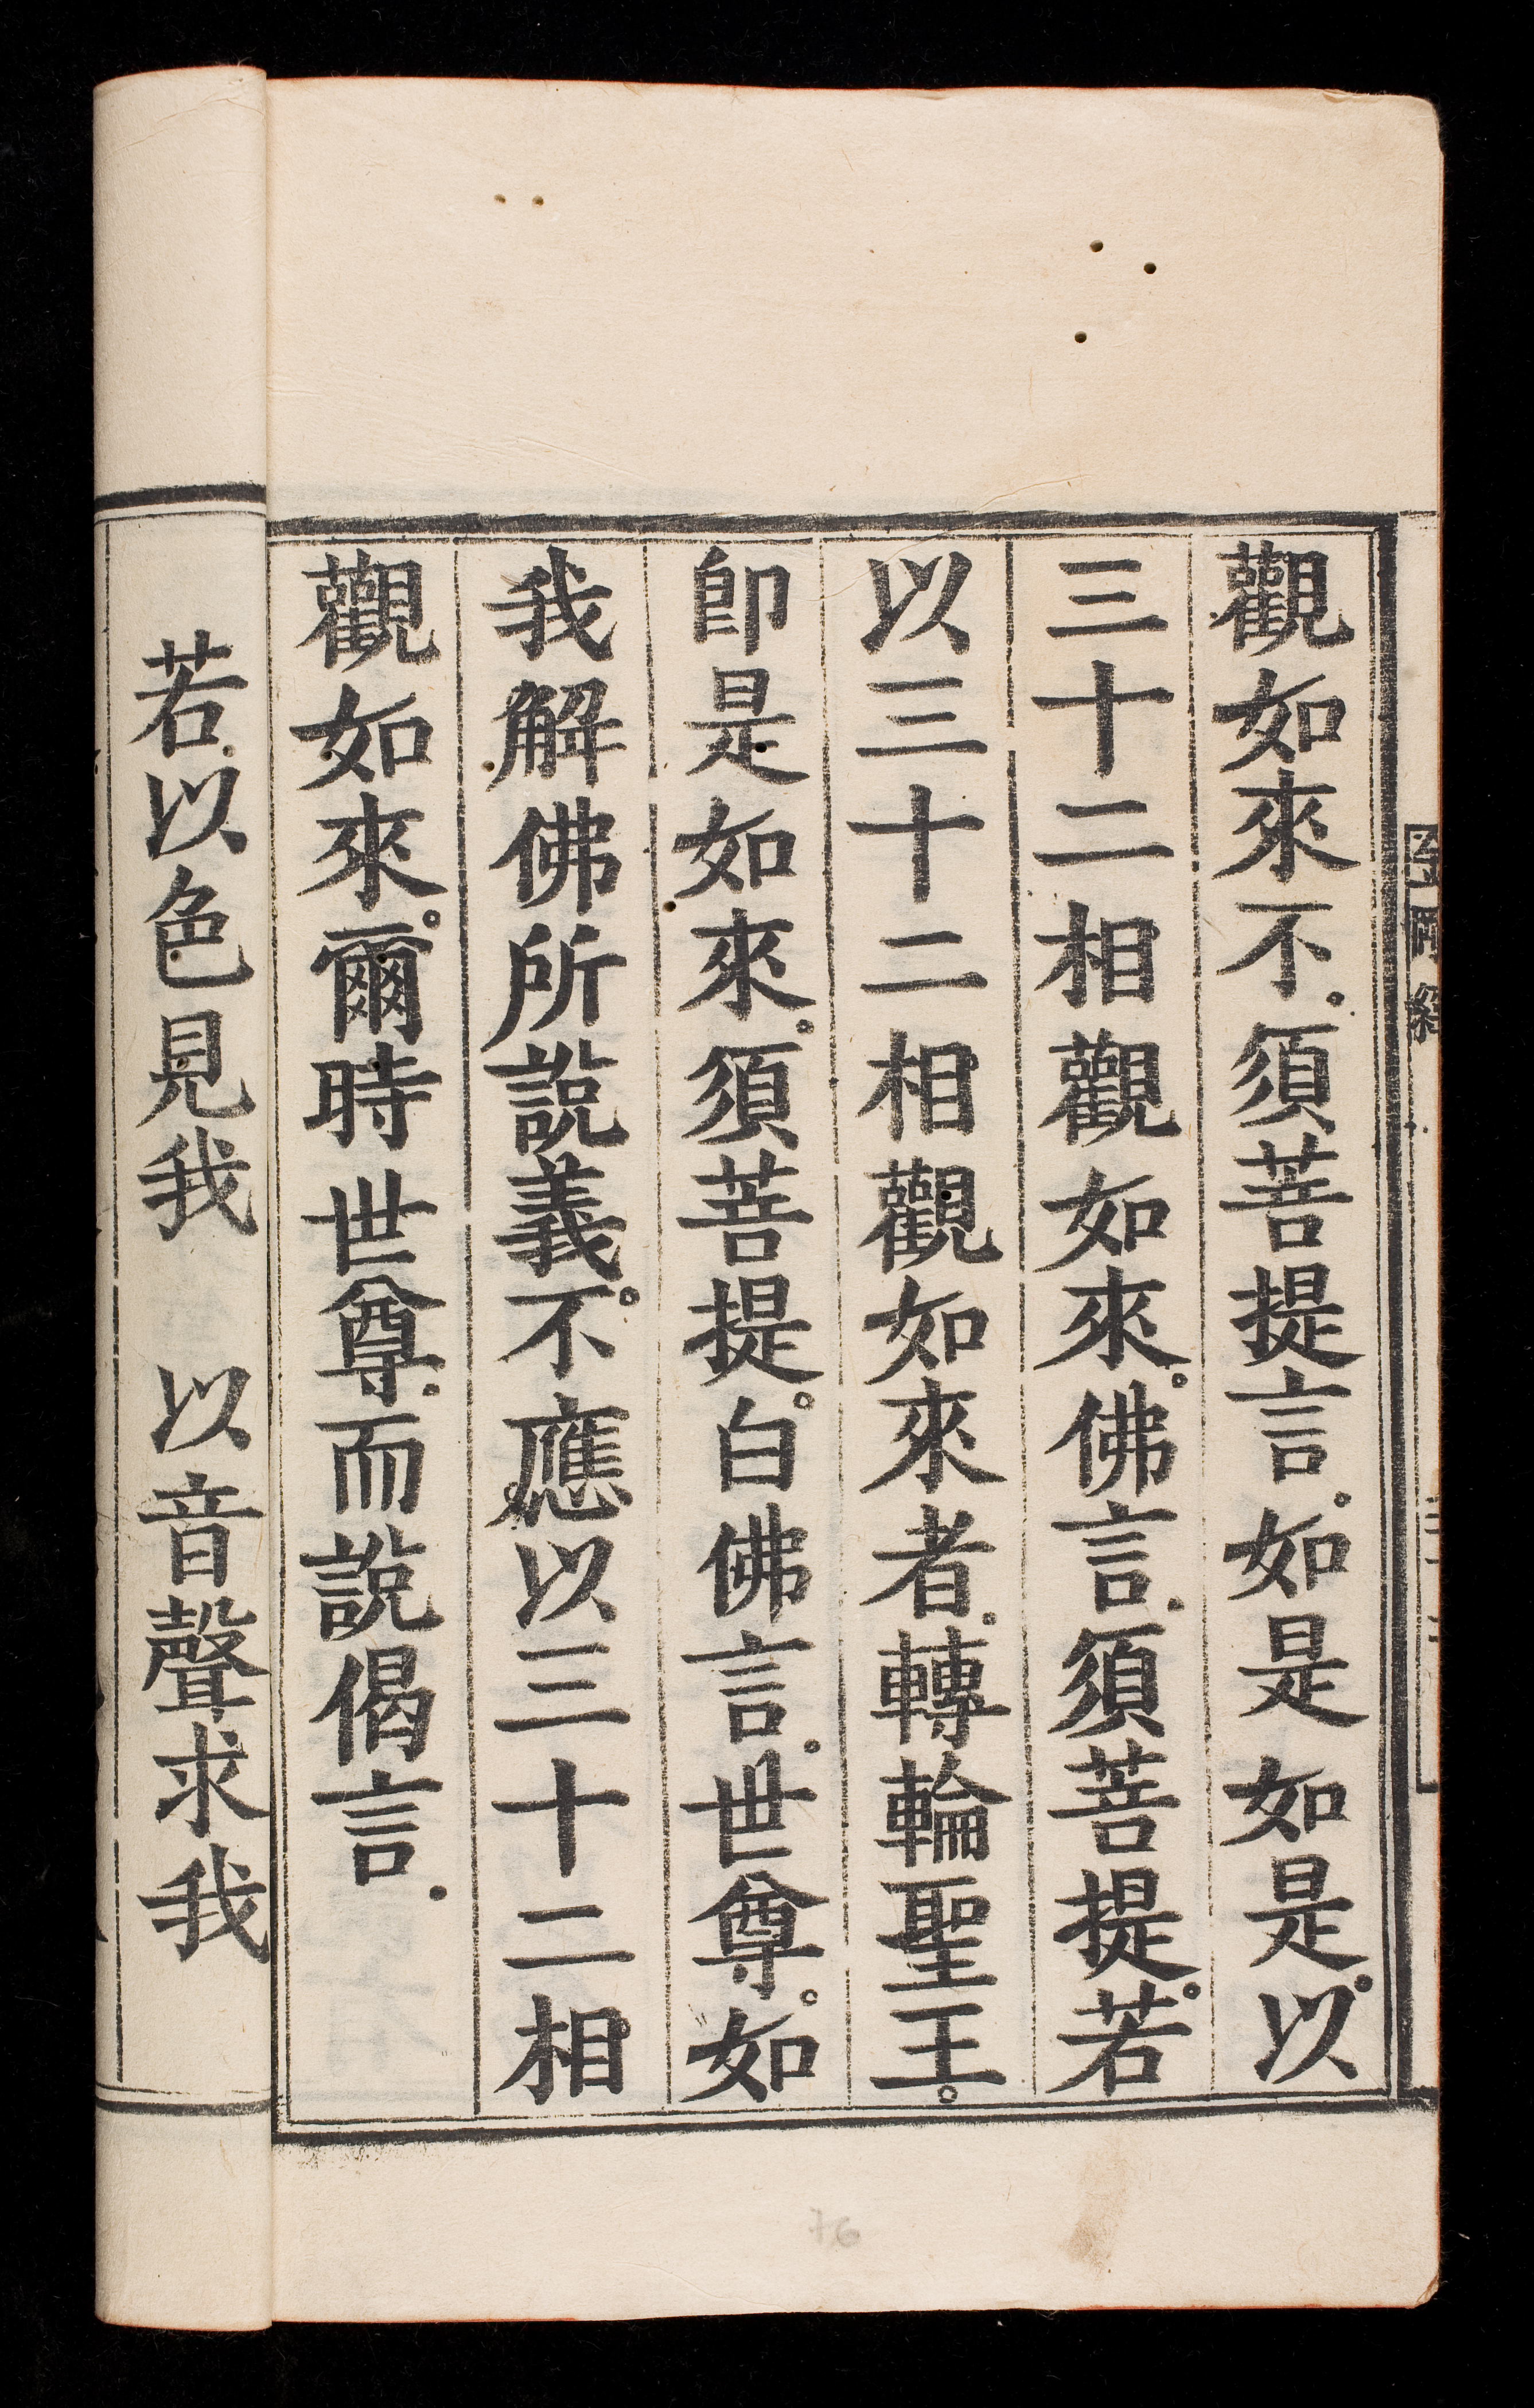 觀如來不。須菩提言。如是如是。以
三十二相觀如來。佛言。須菩提。若
以三十二相觀如來者。轉輪聖王。
卽是如來。須菩提。白佛言。世尊。如
我解佛所說義。不應以三十二相
觀如來。爾時世尊。而說偈言。
若以色見我　以音聲求我
76